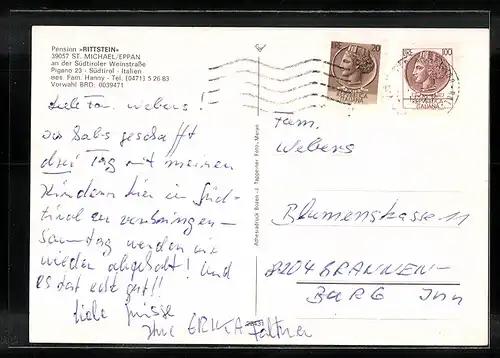 Pension »RITTSTEIN«
39057 ST. MICHAEL/EPPAN
an der Südtiroler Weinstraße
Pigano 23 - Südtirol - Italien
Bes. Fam. Hanny - Tel. (0471) 5 26 83
Vorwahl BRD: 0039471
20
LIRE 100
ITALIANA
ITALIANA
Liebe Fam. Webers!
geschafft
drei Tag mit meinen
Kindern hier in Süd-
tirol zu verbringen –
Samstag werden wir
wieder abgeholt! Und
es tut echt gut!!
Liebe Grüsse
Ihre ERIKA
Athesiadruck Bozen - J. Tappeiner Foto, Meran
Fam.
Webers
Blumenstrasse 11
8204 BRANNEN-
BURG Inn